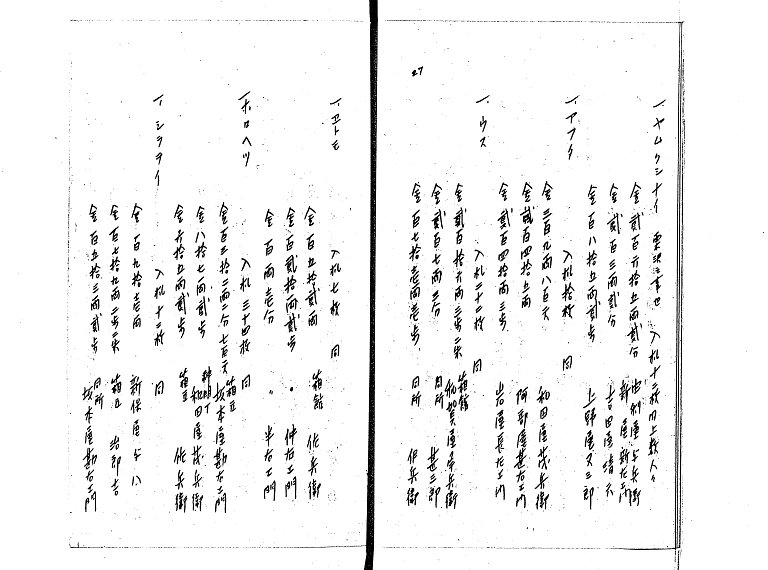 27
一、ヤムクシナイ 入札十二枚内上数人々
金貳百六拾五両貳分 由利屋与兵衛
新屋新左エ門
金貳百三両貳分 吉田屋
金百八拾五両貳歩 上野屋又三郎
一、アフタ 入札拾枚 同
金三百九両八百文 和田屋茂兵衛
金貳百四拾五両 阿部屋甚右エ門
金貳百四拾両三歩 岩屋長左エ門
一、ウス 入札二十二枚 同
金貳百拾六両三歩二朱 箱館 和賀屋宇兵衛
金貳百七両三分 同所 甚三郎
金百七拾壱両壱歩 同所 伊兵衛
一、ヱトモ 入札七枚 同
金百五拾貳両 箱館 佐兵衛
金百貳拾両貳歩 〃 仲右エ門
金百両壱分 〃 半右エ門
一、ホロヘツ 入札三十四枚 同
金百三拾二両二分七百文 箱立 坂本屋勘右エ門
金八拾七両貳歩 和田屋茂兵衛
金六拾五両貳歩 箱立 佐兵衛
一、シラヲイ 入札十二枚 同
金百九拾壱両 新保屋与八
金百七拾九両二歩二朱 箱立 治郎吉
金百五拾三両貳歩 同所 坂本屋勘右エ門